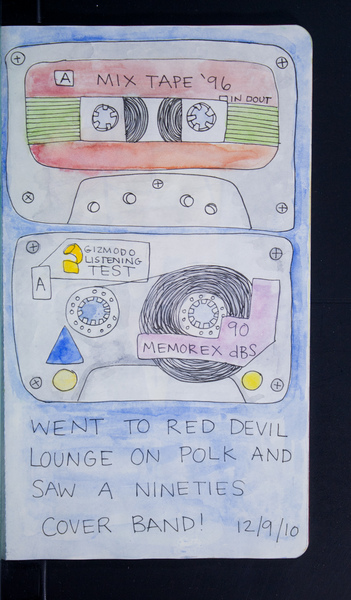 A MIX TAPE '96
IN DOUT
GIZMODO
LISTENING
TEST
A
90
MEMOREX dBS
WENT TO RED DEVIL
LOUNGE ON POLK AND
SAW A NINETIES
COVER BAND! 12/9/10